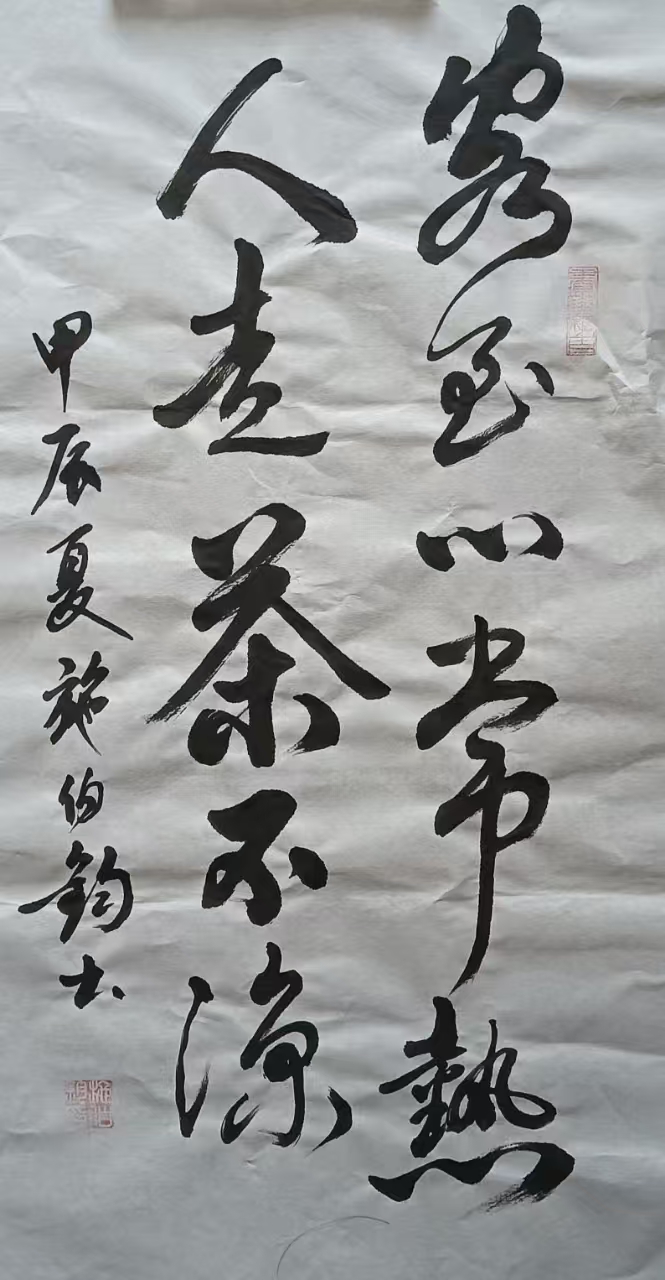 客至心常熱
人走茶不涼
甲辰夏施伯鈞书